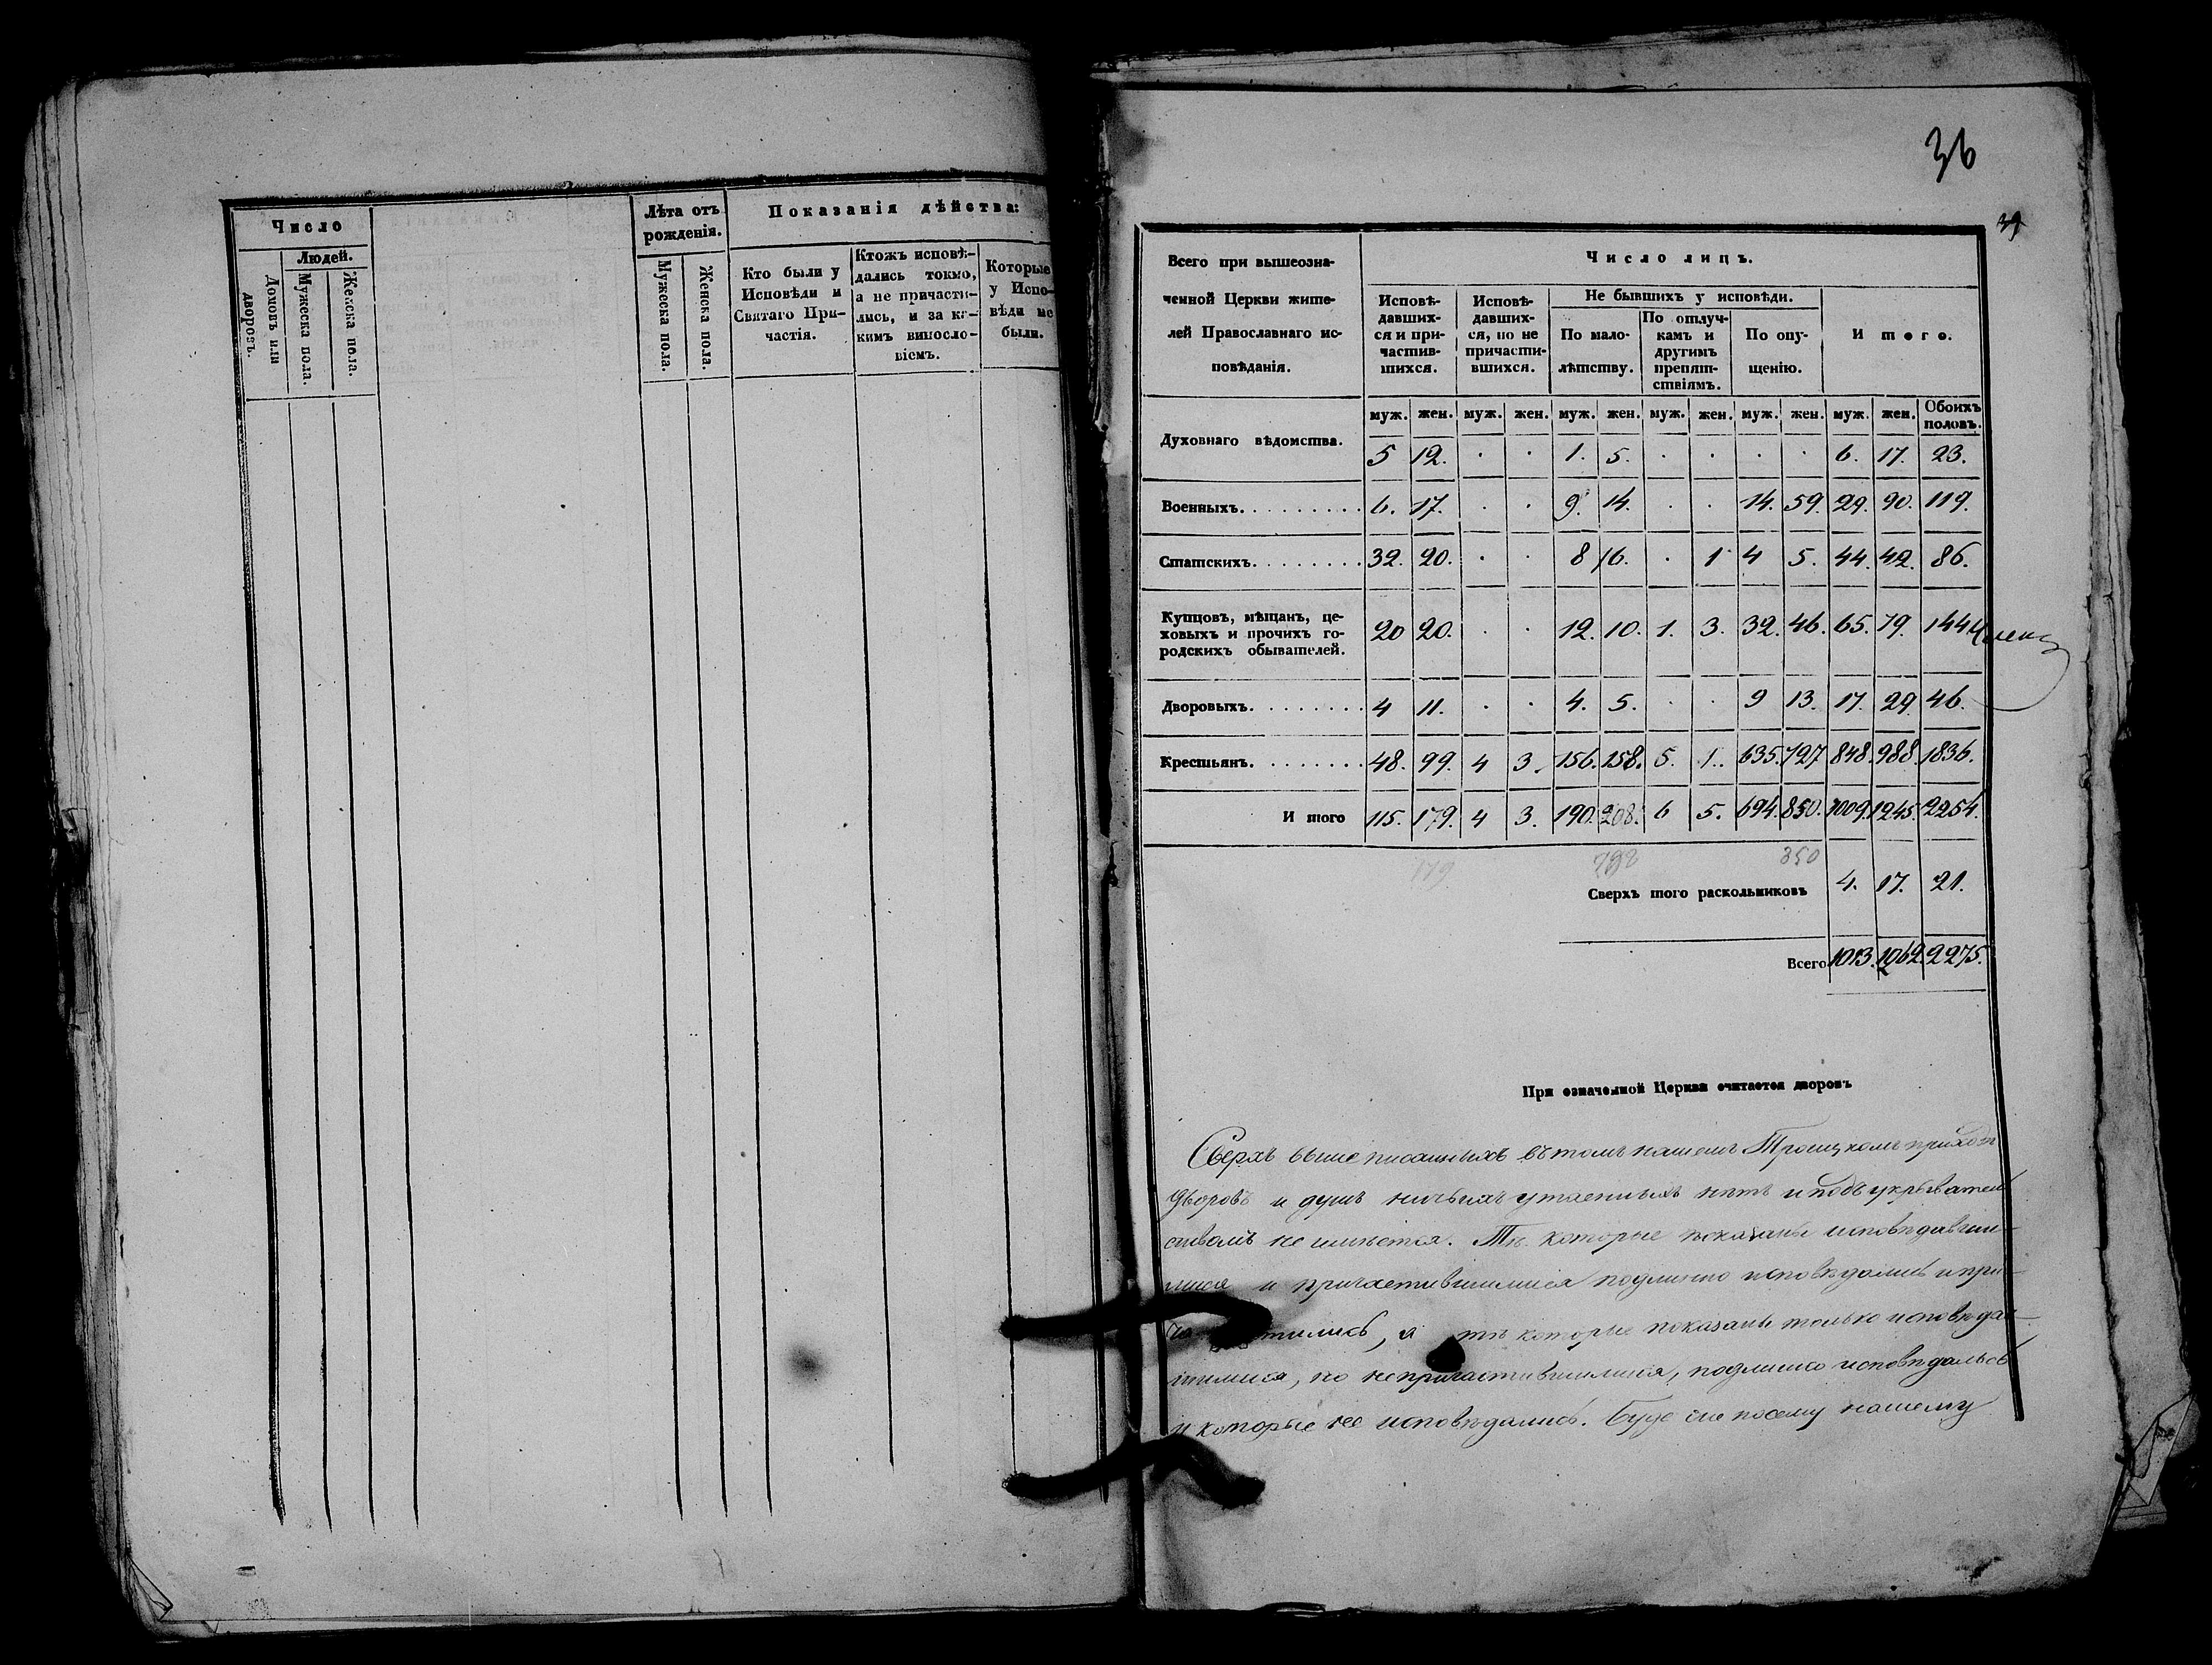 Число
Людей.
Домовъ или дворовъ.
Мужеска пола.
Женска пола.
Лѣта отъ рожденія.
Мужеска пола.
Женска пола.
Показанія дѣйства:
Кто были у
Исповѣди и
Святаго При-
частія.
Ктожъ исповѣ-
дались токмо,
а не причасти-
лись, и за ка-
кимъ виносло-
віемъ.
Которые
у Испо-
вѣди не
были.
36
39
Всего при вышеозна-
ченной Церкви жите-
лей Православнаго ис-
повѣданія.
Число лицъ.
Исповѣ-
давших-
ся и при-
частив-
шихся.
Исповѣ-
давших-
ся, но не
причасти-
вшихся.
Не бывшихъ у исповѣди.
По мало-
лѣтству.
По отлуч-
камъ и
другимъ
препят-
ствіямъ.
По опу-
щенію.
И того.
муж. жен. муж. жен. муж. жен. муж. жен. муж. жен. муж. жен. Обоихъ половъ.
Духовнаго вѣдомства. 5 12. . . 1. 5. . . . . 6. 17. 23.
Военныхъ. . . . . . . . . 6. 17. . . 9. 14. . . 14. 59. 29. 90. 119.
Статскихъ. . . . . . . . 32. 20. . . 8 16. . 1 4 5. 44. 42. 86.
Купцовъ, мѣщанъ, це-
ховыхъ и прочихъ го-
родскихъ обывателей.
20 20. . . 12. 10. 1. 3. 32. 46. 65. 79. 144
Дворовыхъ. . . . . . . . 4 11. . . 4. 5. . . 9 13. 17. 29. 46.
Крестьянъ. . . . . . . . 48. 99. 4 3. 156. 158. 5. 1. 635. 727 848. 988. 1836.
И того 115. 179. 4 3. 190. 208. 6 5. 694. 850. 1009. 1245. 2254.
179 850
Сверхъ того раскольниковъ 4. 17. 21.
Всего 1013. 1262. 2275.
При означенной Церкви считается дворовъ
Сверхъ выше писанныхъ въ томъ нашемъ Троицкомъ приходѣ
дворовъ и душъ ничьихъ утаенныхъ нѣтъ и подъ укрывател
ствомъ не имѣется. Тѣ которые показаны исповѣдавши-
мися и причастившимися подлинно исповѣдались и при-
частились, а тѣ которые показаны только исповѣдав-
шимися, но непричастившимися, подлинно исповѣдались
и которые не исповѣдались. Буде сие посему нашему